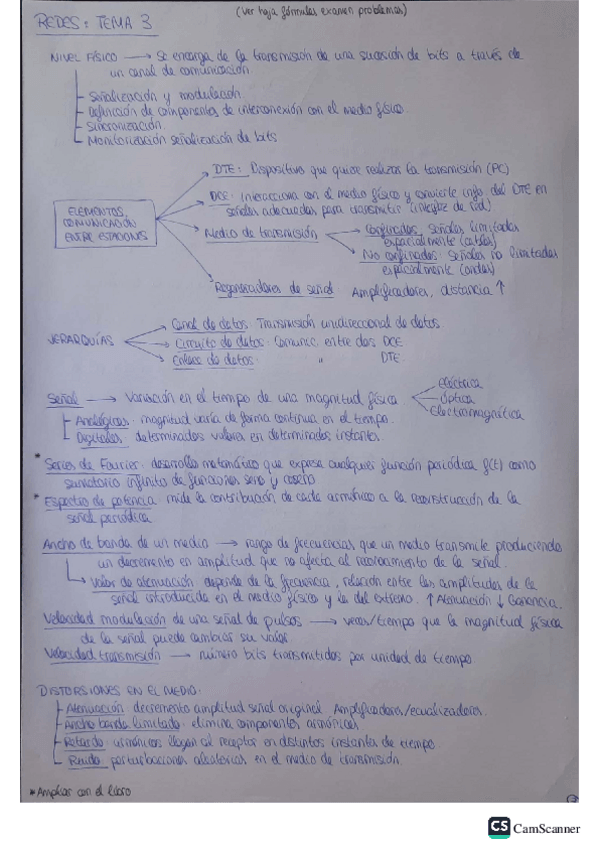 (Ver hoja fórmulas examen problemas)
REDES: TEMA 3
NIVEL FÍSICO → Se encarga de la transmisión de una sucesión de bits a través de
un canal de comunicación.
Señalización y modulación.
Definición de componentes de interconexión con el medio físico.
Sincronización.
Monitorización señalización de bits
DTE: Dispositivo que quiere realizar la transmisión (PC)
DCE: Interacciona con el medio físico y convierte info. del DTE en
señales adecuadas para transmitir (interfaz de red)
ELEMENTOS
COMUNICACIÓN
ENTRE ESTACIONES
Medio de transmisión
Confinados: Señales limitadas
espacialmente (cables)
No confinados: Señales no limitadas
espacialmente (ondas)
Regeneradores de señal: Amplificadores, distancia ↑
JERARQUÍAS
Canal de datos: Transmisión unidireccional de datos.
Circuito de datos: Comunic. entre dos DCE
Enlace de datos: " DTE
Señal → Variación en el tiempo de una magnitud física.
Eléctrica
Óptica
Electromagnética
Analógicas: magnitud varía de forma continua en el tiempo.
Digitales: determinados valores en determinados instantes.
* Series de Fourier: desarrollo matemático que expresa cualquier función periódica f(t) como
sumatorio infinito de funciones seno y coseno
* Espectro de potencia: mide la contribución de cada armónico a la reconstrucción de la
señal periódica
Ancho de banda de un medio → rango de frecuencias que un medio transmite produciendo
un decremento en amplitud que no afecta al reconocimiento de la señal.
Valor de atenuación depende de la frecuencia, relación entre las amplitudes de la
señal introducida en el medio físico y la del extremo. ↑ Atenuación ↓ Ganancia.
Velocidad modulación de una señal de pulsos → veces/tiempo que la magnitud física
de la señal puede cambiar su valor
Velocidad transmisión → número bits transmitidos por unidad de tiempo
DISTORSIONES EN EL MEDIO:
Atenuación: decremento amplitud señal original. Amplificadores/ecualizadores.
Ancho banda limitado: elimina componentes armónicos
Retardo: armónicos llegan al receptor en distintos instantes de tiempo
Ruido: perturbaciones aleatorias en el medio de transmisión.
* Ampliar con el libro
CS CamScanner